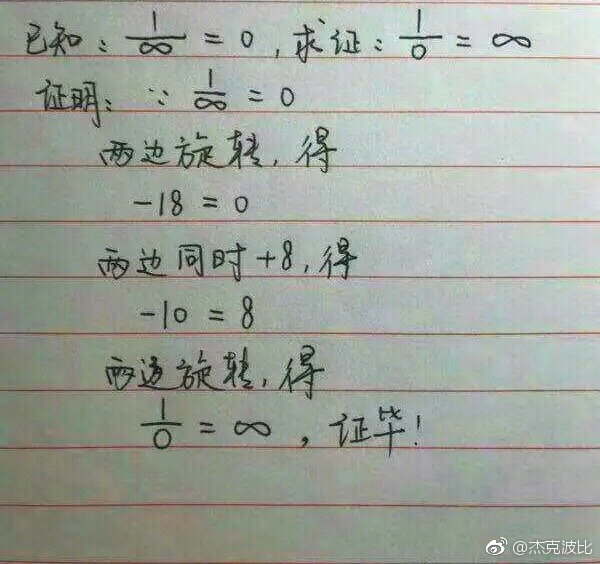 已知：1/∞ = 0，求证：1/0 = ∞
证明：∵ 1/∞ = 0
两边旋转，得
-18 = 0
两边同时+8，得
-10 = 8
两边旋转，得
1/0 = ∞，证毕！
@杰克波比